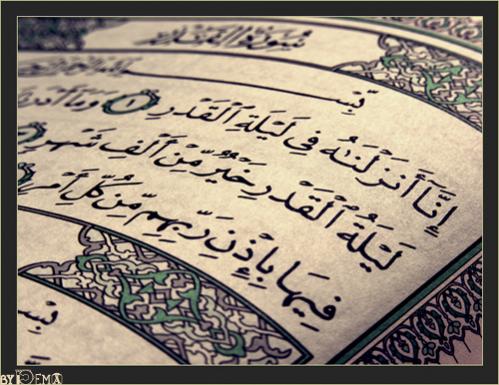 سُورَةُ الْقَدْرِ
بِسْمِ
إِنَّآ أَنزَلْنَٰهُ فِى لَيْلَةِ ٱلْقَدْرِ ١ وَمَآ أَدْرَىٰ
لَيْلَةُ ٱلْقَدْرِ خَيْرٌ مِّنْ أَلْفِ شَهْرٍ
فِيهَا بِإِذْنِ رَبِّهِم مِّن كُلِّ أَمْرٍ
بِسْـ
BY